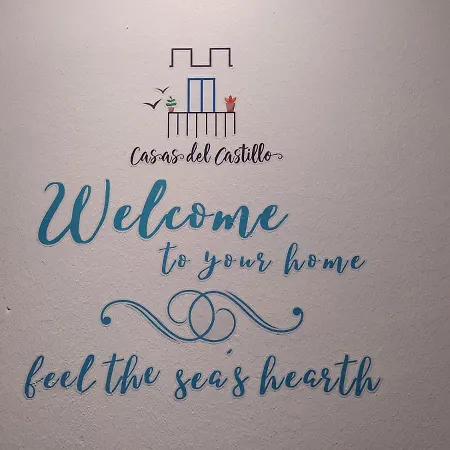 Casas del Castillo
Welcome
to your home
feel the sea's hearth